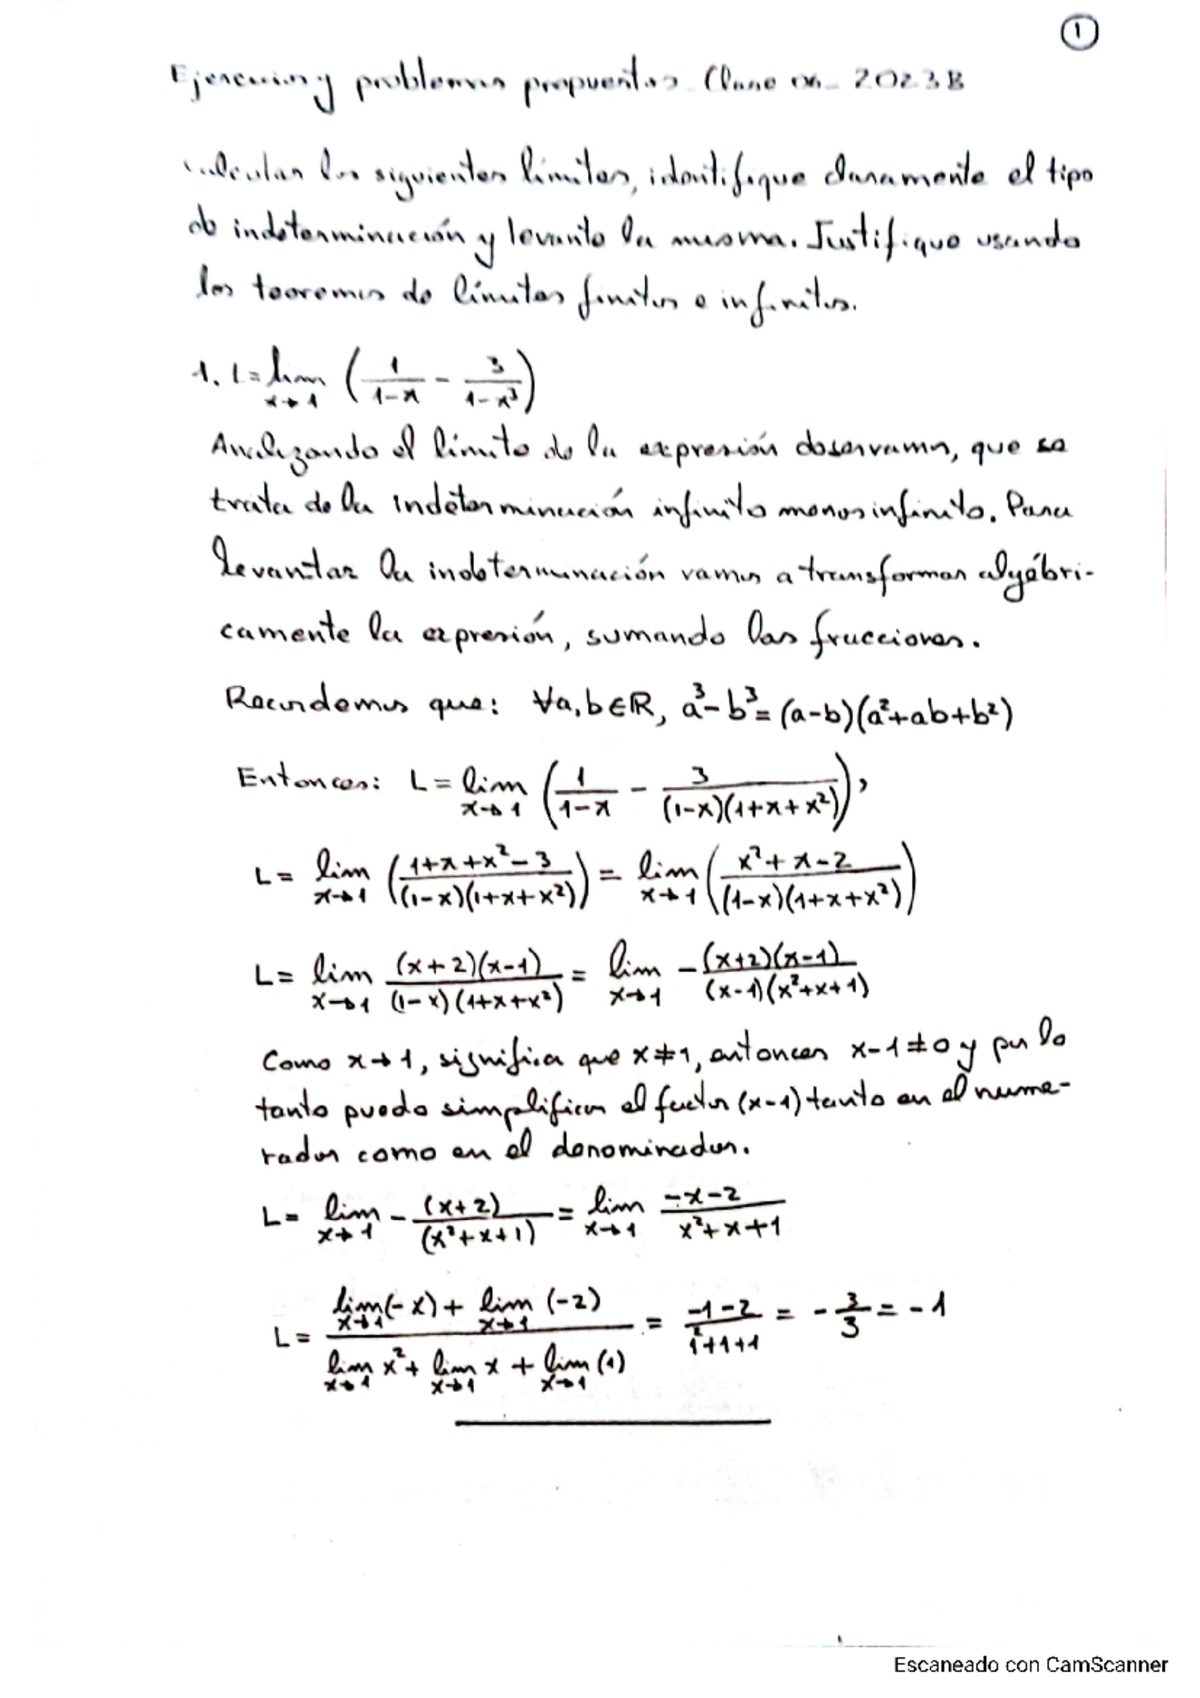 1
Ejercicios y problemas propuestos Clase 06_ 2023B
calcular los siguientes límites, identifique claramente el tipo
de indeterminación y levante la misma. Justifique usando
los teoremas de límites finitos e infinitos.
1. L = lim x→1 (1/(1-x) - 3/(1-x³))
Analizando el límite de la expresión observamos, que se
trata de la indeterminación infinito menos infinito. Para
levantar la indeterminación vamos a transformar algébri-
camente la expresión, sumando las fracciones.
Recordemos que: ∀a,b∈ℝ, a³-b³=(a-b)(a²+ab+b²)
Entonces: L = lim x→1 (1/(1-x) - 3/((1-x)(1+x+x²))),
L = lim x→1 ((1+x+x²-3)/((1-x)(1+x+x²))) = lim x→1 ((x²+x-2)/((1-x)(1+x+x²)))
L = lim x→1 (x+2)(x-1)/((1-x)(1+x+x²)) = lim x→1 -(x+2)(x-1)/((x-1)(x²+x+1))
Como x→1, significa que x≠1, entonces x-1≠0 y por lo
tanto puedo simplificar el factor (x-1) tanto en el nume-
rador como en el denominador.
L = lim x→1 -(x+2)/(x²+x+1) = lim x→1 (-x-2)/(x²+x+1)
L = (lim x→1 (-x) + lim x→1 (-2))/(lim x→1 x² + lim x→1 x + lim x→1 (1)) = (-1-2)/(1²+1+1) = -3/3 = -1
Escaneado con CamScanner